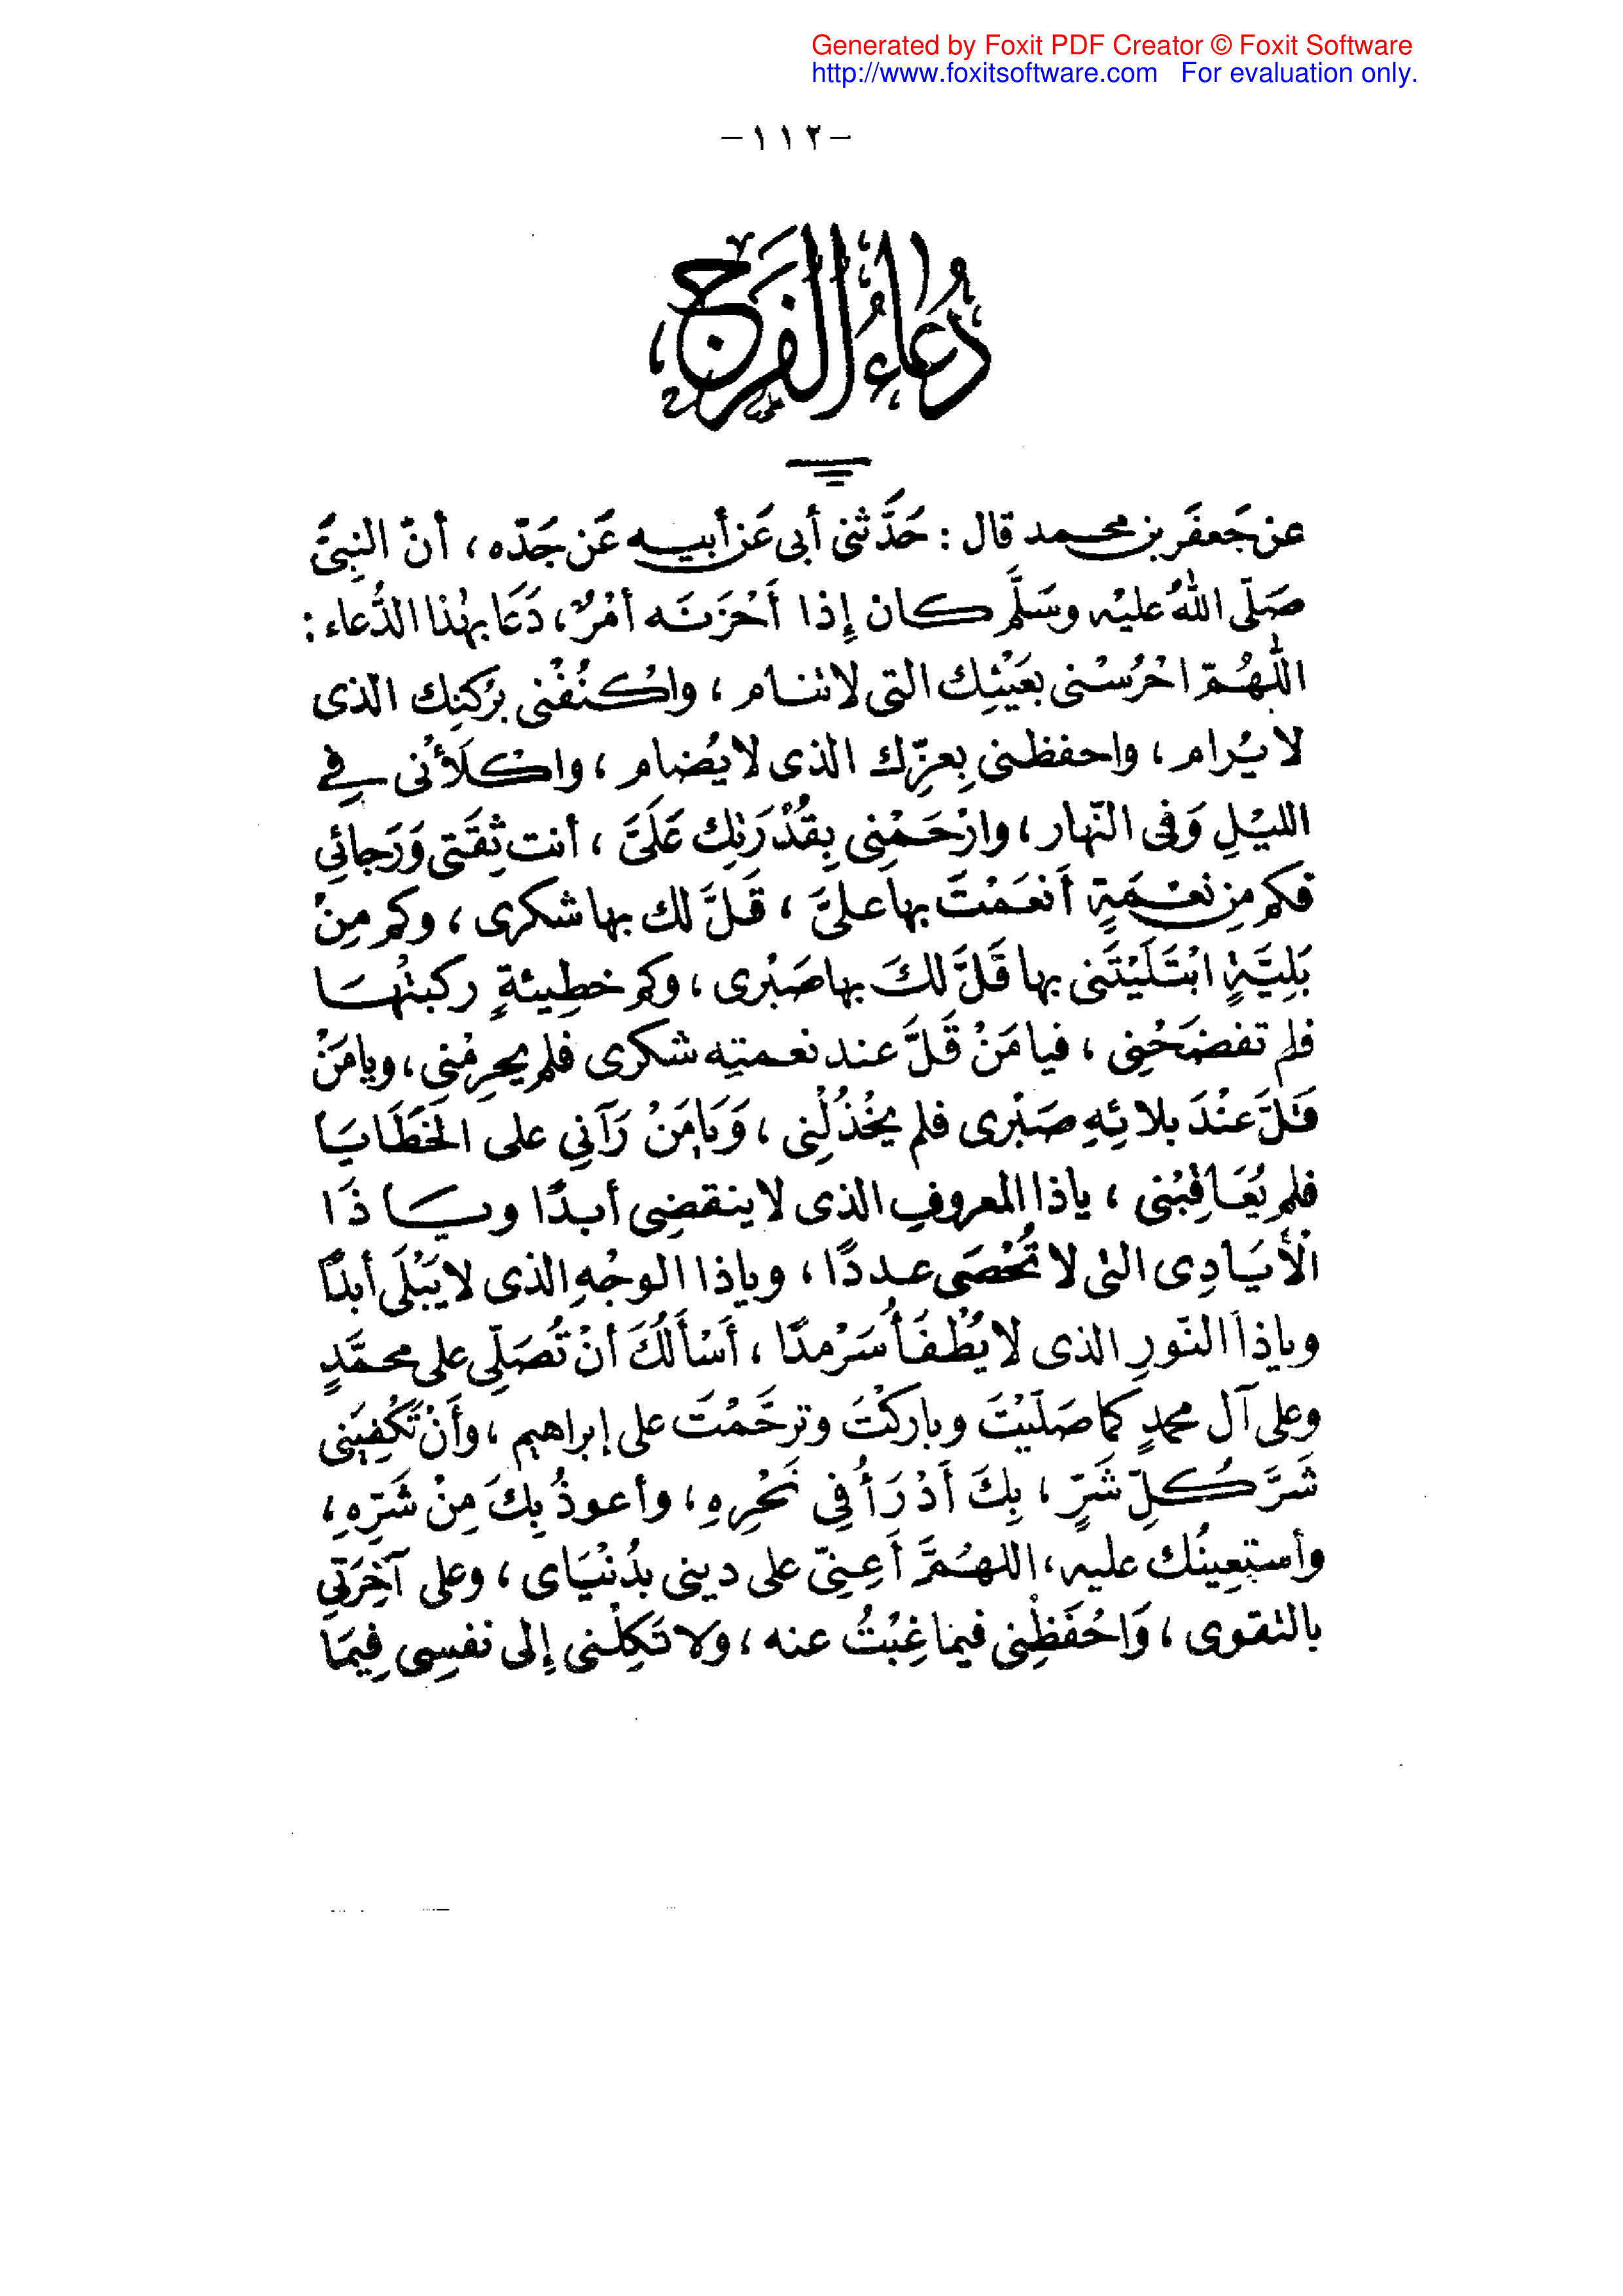 Generated by Foxit PDF Creator © Foxit Software
http://www.foxitsoftware.com   For evaluation only.
-١١٢-
دُعَاءُ الفَرَج
عن جَعفَر بن محمد قال : حَدَّثنى أبى عَن أبيه عَن جَدّه ، أنّ النبِىَّ
صَلّى اللهُ عليْه وسَلَّم كان إِذا أَحْزَنَه أمْرٌ ، دَعَا بهٰذا الدُّعاء :
اللّٰهُمّ احْرُسْنى بعَيْنِك التى لا تنام ، واكْنُفْنى برُكنِك الذى
لا يُرام ، واحفظنى بِعِزِّك الذى لا يُضام ، واكْلَأْنى فى
الليْلِ وَفى النّهار ، وارْحَمْنِى بِقُدْرَتِك عَلَىَّ ، أنت ثِقَتى وَرَجائِي
فكم مِن نعْمَةٍ أَنعَمْتَ بها علىَّ ، قَلَّ لك بها شكرى ، وكم مِنْ
بَلِيَّةٍ ابْتَلَيْتَنى بها قَلَّ لكَ بها صَبْرى ، وكم خطِيئةٍ ركبتُهَا
فلم تفضَحْنِى ، فيا مَنْ قَلَّ عند نعمتِه شكرى فلم يحرِمْنِى ، ويا مَنْ
قَلَّ عنْدَ بلائِهِ صَبْرى فلم يخْذُلْنِى ، وَيَا مَنْ رَآنِي على الخَطَايَا
فلم يُعَاقِبْنى ، ياذا المعروفِ الذى لا ينقضِى أبدًا ويا ذَا
الأَيَادِى التى لا تُحْصَى عددًا ، وياذا الوجْهِ الذى لا يَبْلَى أبدًا
وياذا النّورِ الذى لا يُطْفَأُ سَرْمدًا ، أَسْأَلُكَ أنْ تُصَلِّى على محمَّدٍ
وعلى آل محمدٍ كما صَلَيْتَ وباركْتَ وترحَّمْتَ على إبراهيم ، وأَنْ تَكْفِيَنى
شَرَّ كُلِّ شَرٍّ ، بِكَ أَدْرَأُ فِى نَحْرِهِ ، وأعوذُ بِكَ مِنْ شَرِّهِ ،
وأستعِينُك عليه ، اللهُمَّ أَعِنِّى على دينى بدُنْيَاى ، وعلى آخِرَتِي
بالتقوى ، وَاحْفَظْنِى فيما غِبْتُ عنه ، ولا تَكِلْنى إلى نفسِى فِيمَا